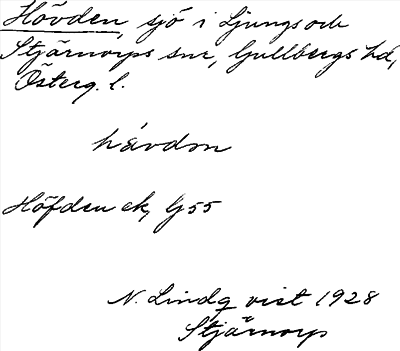 Hövden, sjö i Ljungs och
Stjärnorps snr, Gullbergs hd,
Österg. l.
hávdm
Höfden ek, G 55
N. Lindqvist 1928
Stjärnorp